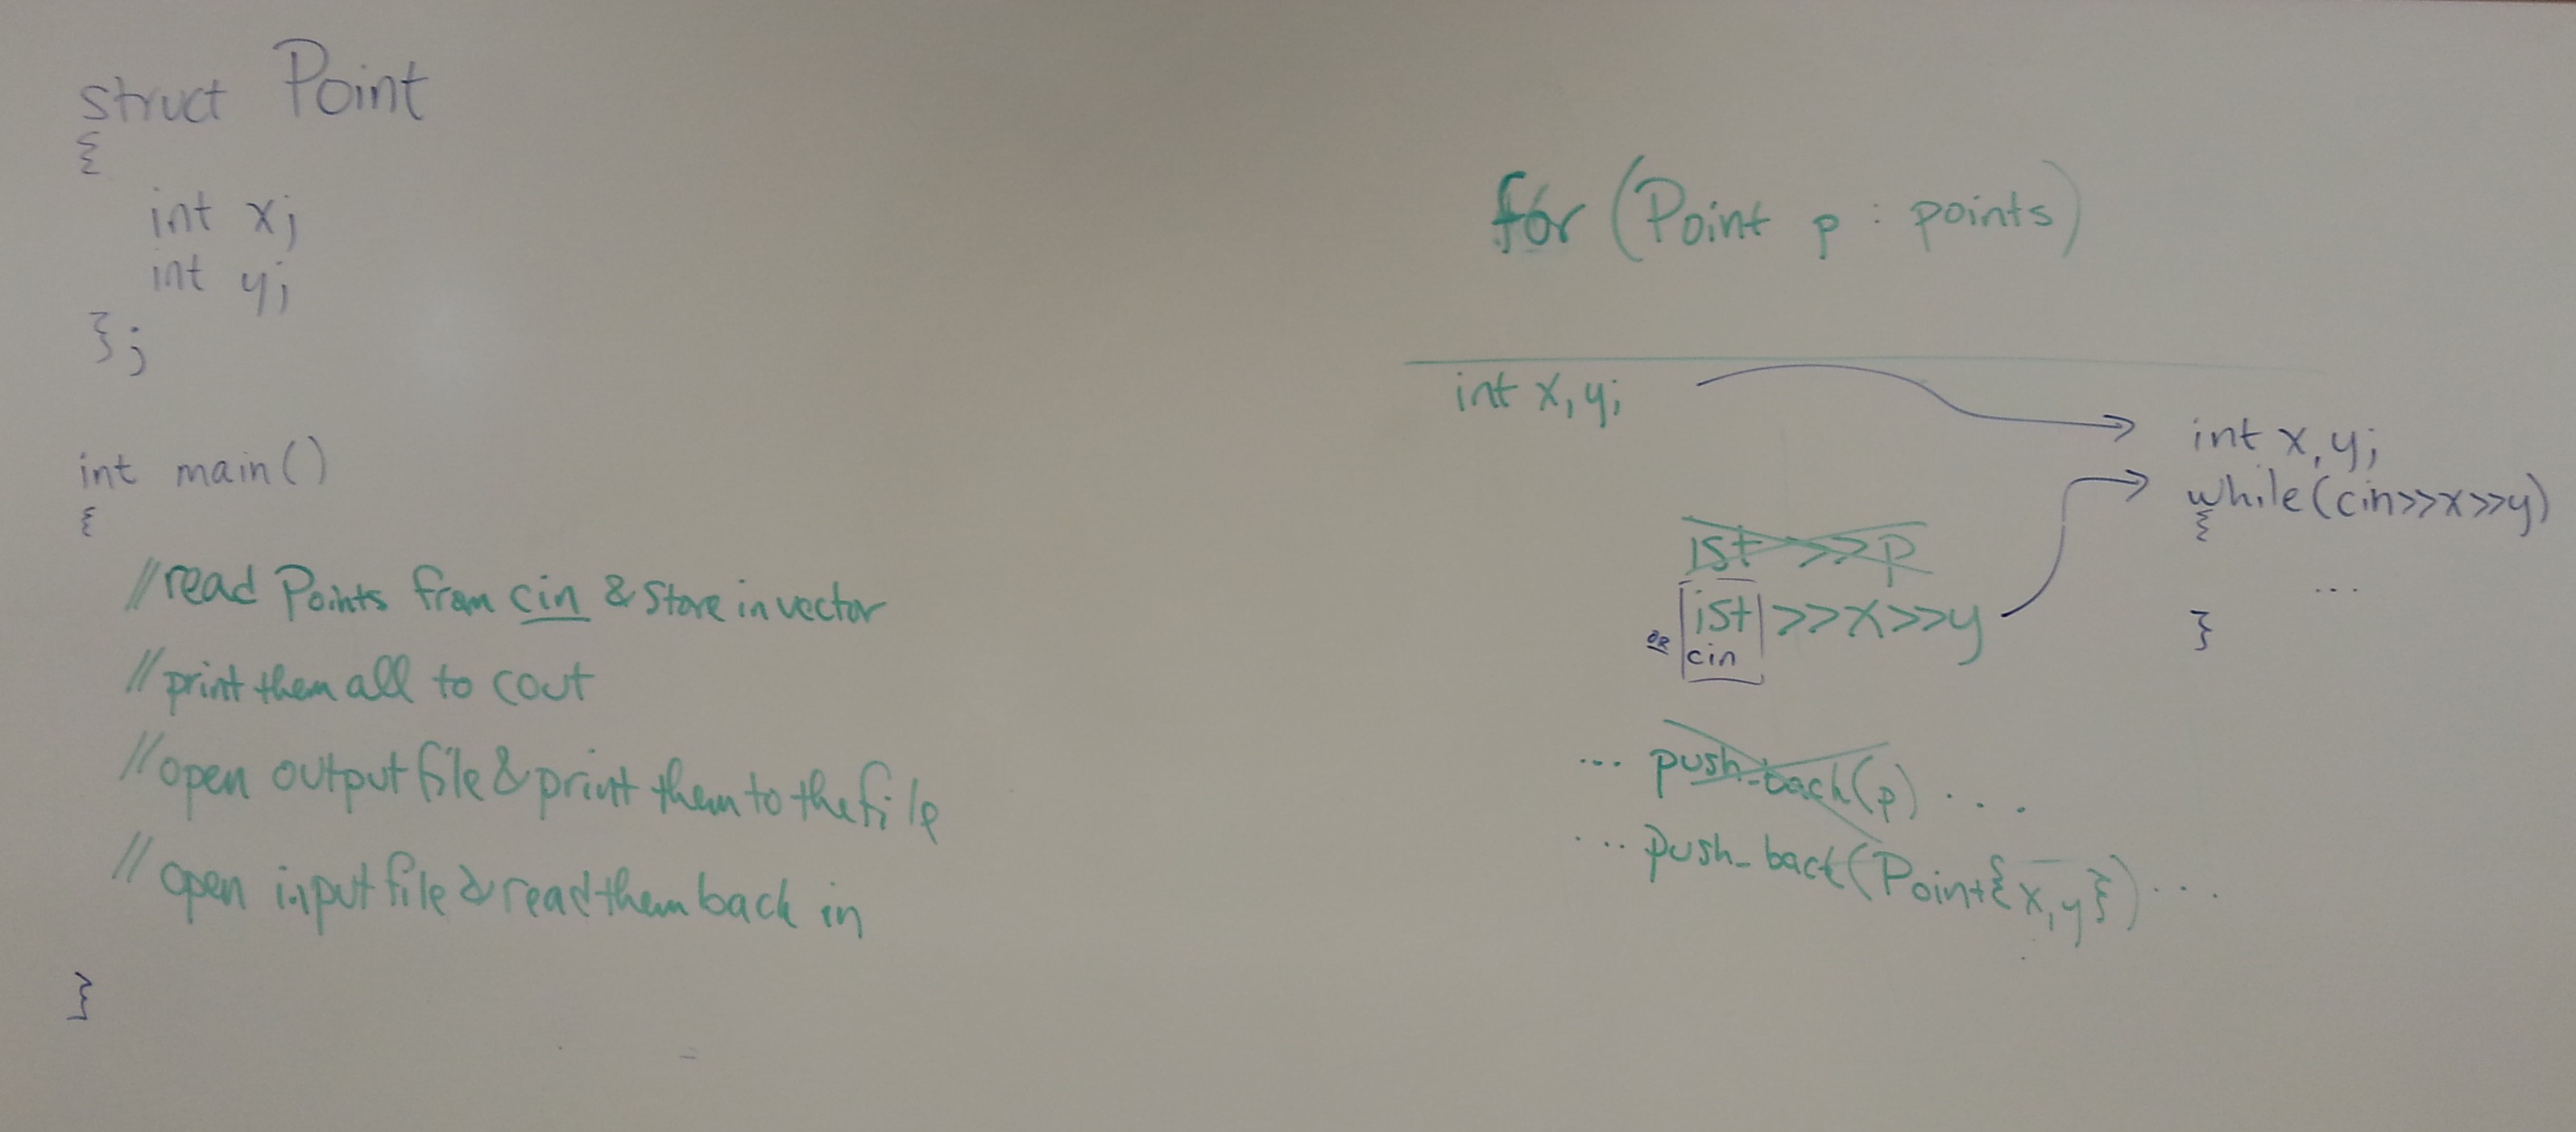 struct Point
{
int x;
int y;
};
int main()
{
//read Points from cin & store in vector
//print them all to cout
//open output file & print them to the file
//open input file & read them back in
}
for (Point p : points)
int x, y;
ist >> p
ist >> x >> y
or cin
... push_back(p) ....
... push_back(Point{x, y}) ...
int x, y;
while(cin>>x>>y)
{
...
}